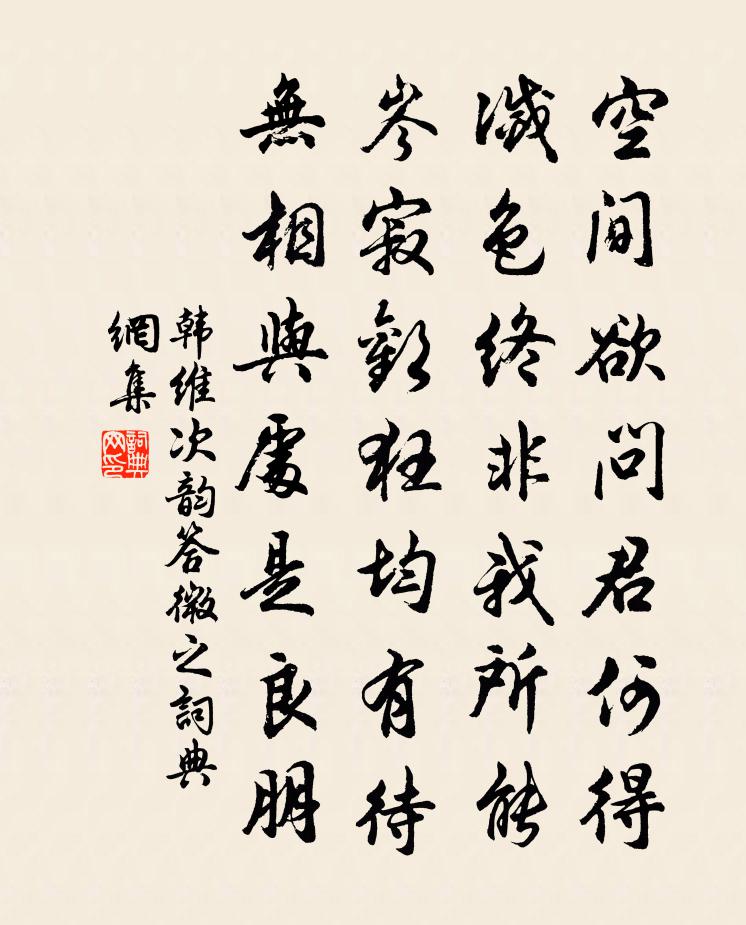 空間欲問君何得
滅色終非我所能
岑寂歡狂均有待
無相與處是良朋
韩維次韵答微之詞典
網集
詞典
网印